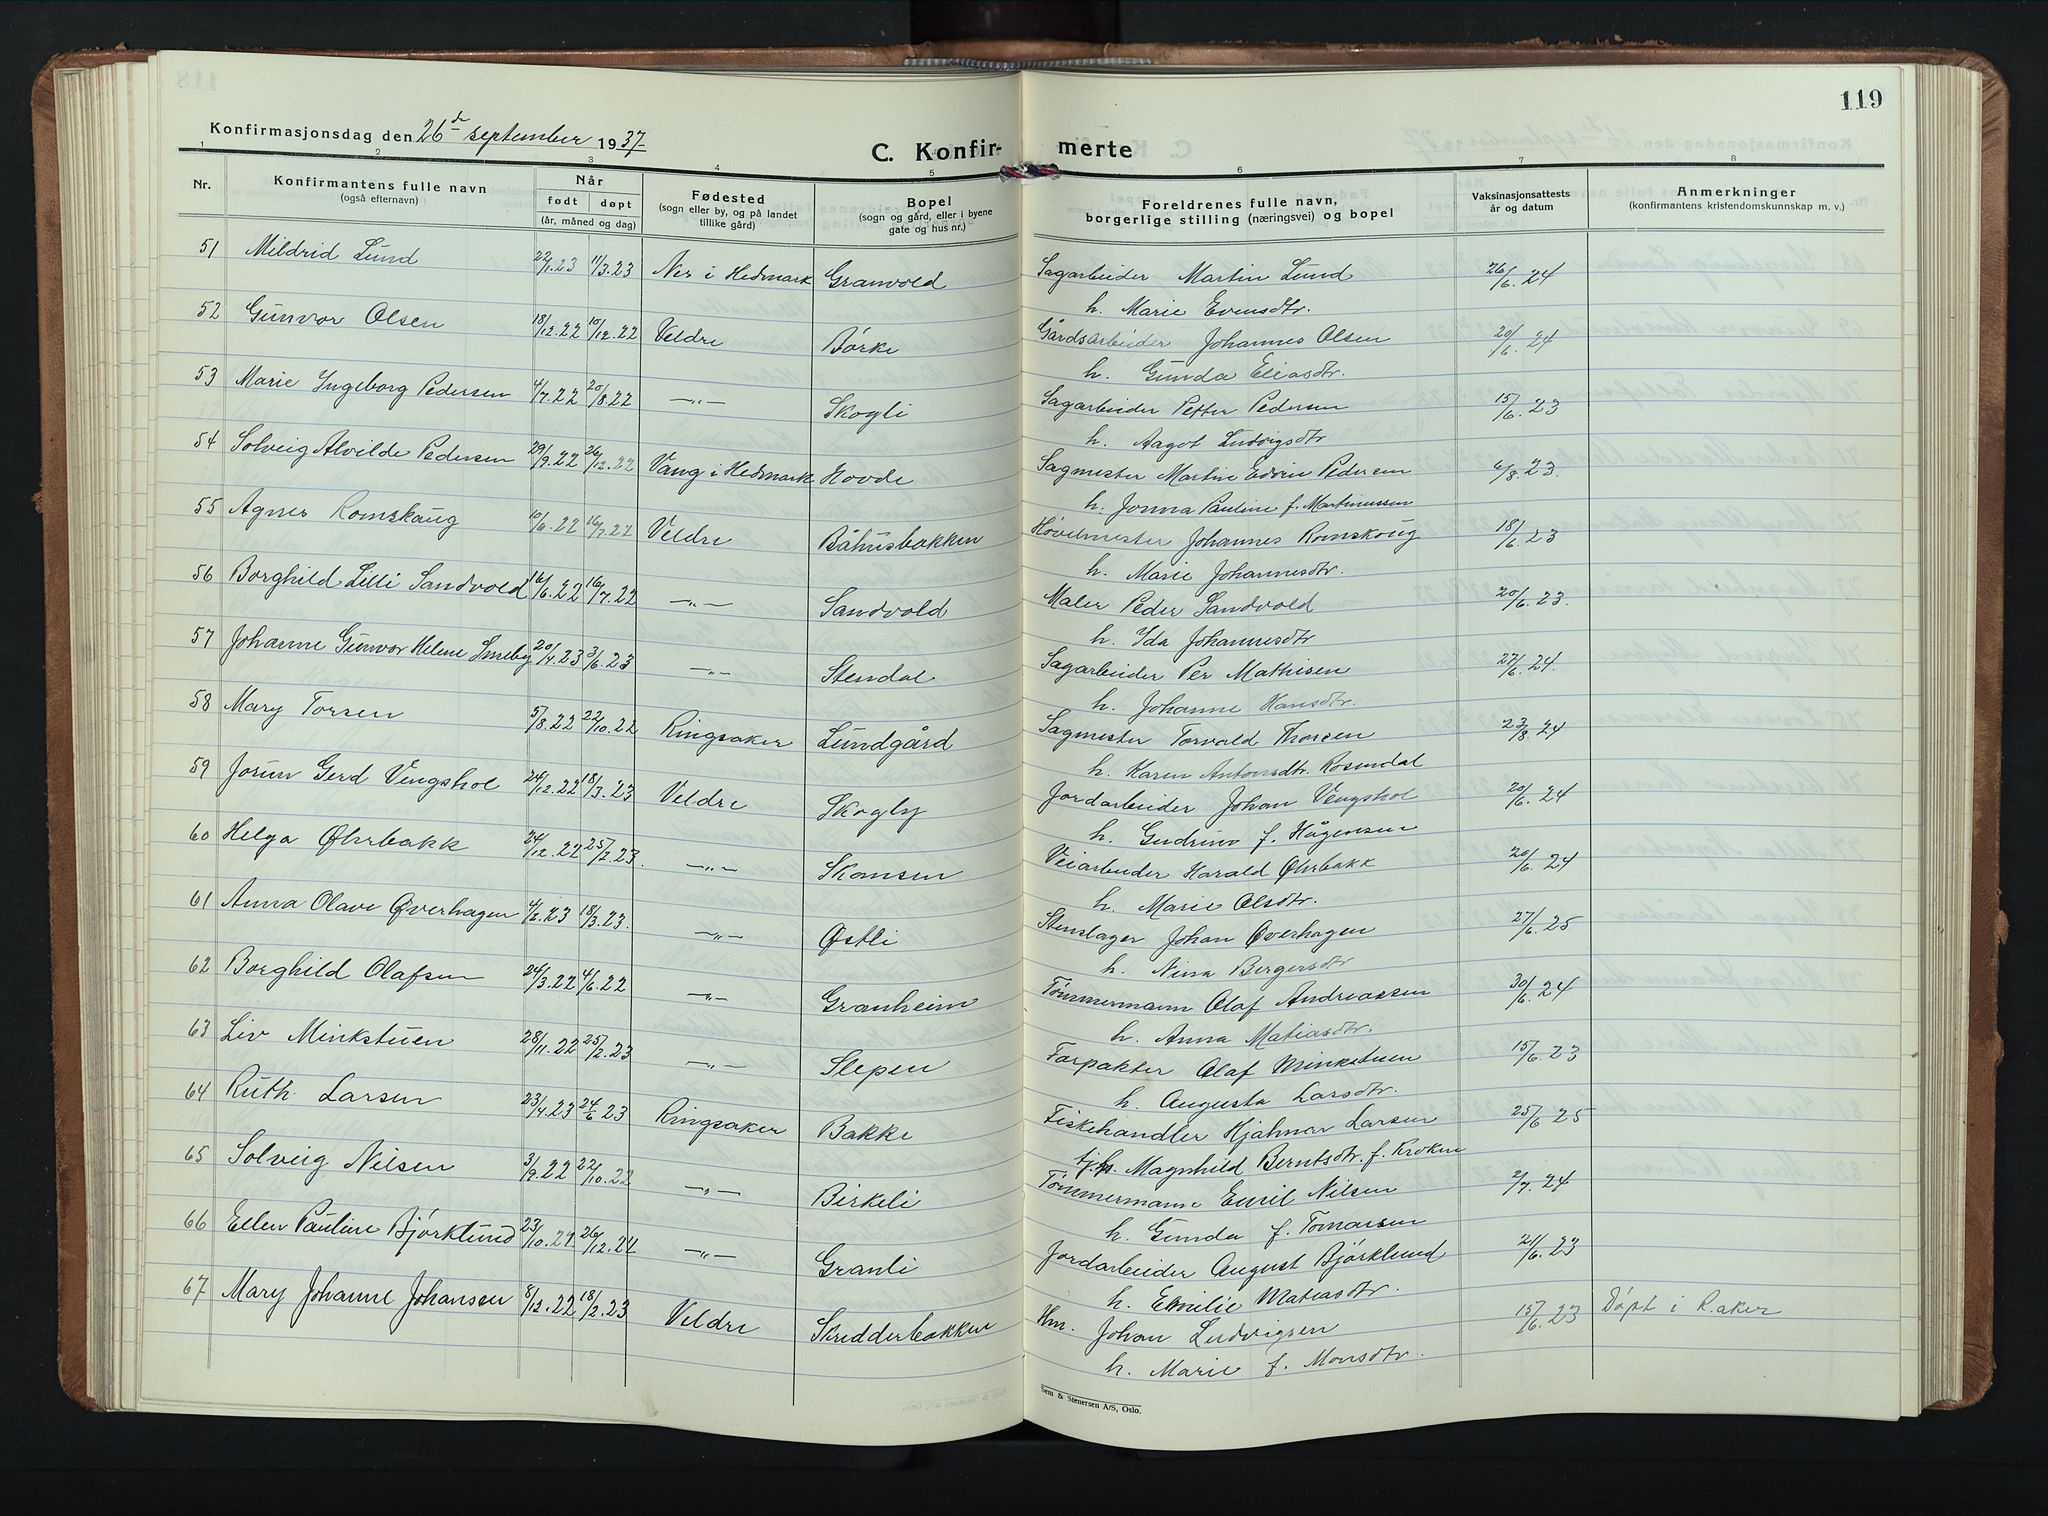 119
Konfirmasjonsdag den 26de september 1937.
C. Konfir- merte
1 2 3 4 5 6 7 8
Nr. Konfirmantens fulle navn (også efternavn) Når født døpt (år, måned og dag) Fødested (sogn eller by, og på landet tillike gård) Bopel (sogn og gård, eller i byene gate og hus nr.) Foreldrenes fulle navn, borgerlige stilling (næringsvei) og bopel Vaksinasjonsattests år og datum Anmerkninger (konfirmantens kristendomskunnskap m. v.)
51 Mildrid Lund 22/1.23 11/3.23 Nes i Hedmark Granvold Sagarbeider Martin Lund 26/6.24
h. Marie Evensdtr.
52 Gunvor Olsen 18/12.22 10/12.22 Veldre Börke Gårdsarbeider Johannes Olsen 20/6.24
h. Gunda Eliasdtr.
53 Marie Ingeborg Pedersen 4/7.22 20/8.22 —"— Skogli Sagarbeider Petter Pedersen 15/6.23
h. Aagot Ludvigsdtr
54 Solveig Alvilde Pedersen 29/9.22 26/12.22 Vang i Hedmark Hovde Sagmester Martin Edvin Pedersen 6/8.23.
h. Jonna Pauline f. Martinussen
55 Agnes Romskaug 10/6.22 16/7.22 Veldre Båhusbakken Høvelmester Johannes Romskoug 18/6.23
h. Marie Johannesdtr.
56 Borghild Lilli Sandvold 16/6.22 16/7.22 —"— Sandvold Maler Peder Sandvold 20/6.23.
h. Ida Johannesdtr
57 Johanne Gunvor Helene Smeby 20/4.23 3/6.23 —"— Stendal Sagarbeider Per Mathisen 27/6.24.
h. Johanne Hansdtr.
58 Mary Torsen 5/8.22 22/10.22 Ringsaker Lundgård Sagmester Torvald Thorsen 23/8.24
h. Karen Antonsdtr. Rosendal
59 Jorun Gerd Vengshol 24/12.22 18/3.23 Veldre Skogly Jordarbeider Johan Vengshol 20/6.24
h. Gudrun f. Hågensen
60 Helga Øhrbakk 24/12.22 25/2.23. —"— Skomsen Veiarbeider Harald Øhrbakk 20/6.24
h. Marie Olsdtr.
61 Anna Olave Øverhagen 4/2.23 18/3.23. —"— Østli Stenslager Johan Øverhagen 27/6.25
h. Nina Bergersdtr
62 Borghild Olafsen 24/3.22 4/6.22 —"— Granheim Tömmermann Olaf Andreassen 30/6.24
h. Anna Matiasdtr.
63 Liv Minkstuen 28/11.22 25/2.23 —"— Slepen Forpakter Olaf Minkstuen 15/6.23
h. Augusta Larsdtr.
64 Ruth Larsen 23/4.23 24/6.23 Ringsaker Bakke Fiskehandler Hjalmar Larsen 25/6.25
h. Magnhild Berntsdtr. f. Kroken
65 Solveig Nilsen 3/9.22 22/10.22 —"— Birkeli Tömmermann Emil Nilsen 2/7.24
h. Gunda f. Tomassen
66 Ellen Pauline Björklund 23/10.21 26/12.21 —"— Granli Jordarbeider August Björklund 21/6.23
h. Emilie Matiasdtr.
67 Mary Johanne Johansen 8/12.22 18/2.23 Veldre Skredderbakken Hm. Johan Ludvigsen 15/6.23 Döpt i R.aker
h. Marie f. Monsdtr.
Sem & Stenersen A/S, Oslo.